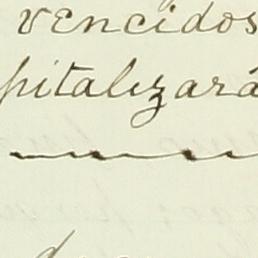 vencidos
pitalizará